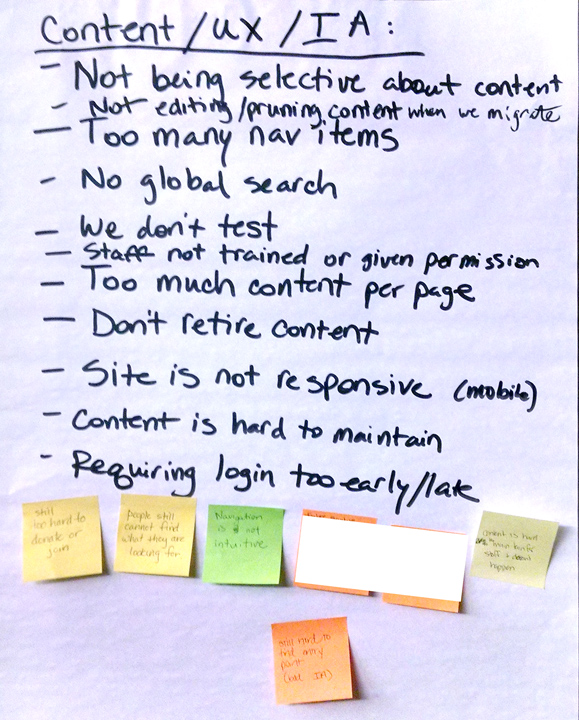 Content/UX/IA:
- Not being selective about content
- Not editing/pruning content when we migrate
- Too many nav items
- No global search
- We don't test
- Staff not trained or given permission
- Too much content per page
- Don't retire content
- Site is not responsive (mobile)
- Content is hard to maintain
- Requiring login too early/late
still
too hard to
donate or
join
people still
cannot find
what they are
looking for
Navigation
is not
intuitive
content is hard
staff & doesn't
happen
still hard to
find entry
point
(bad IA)